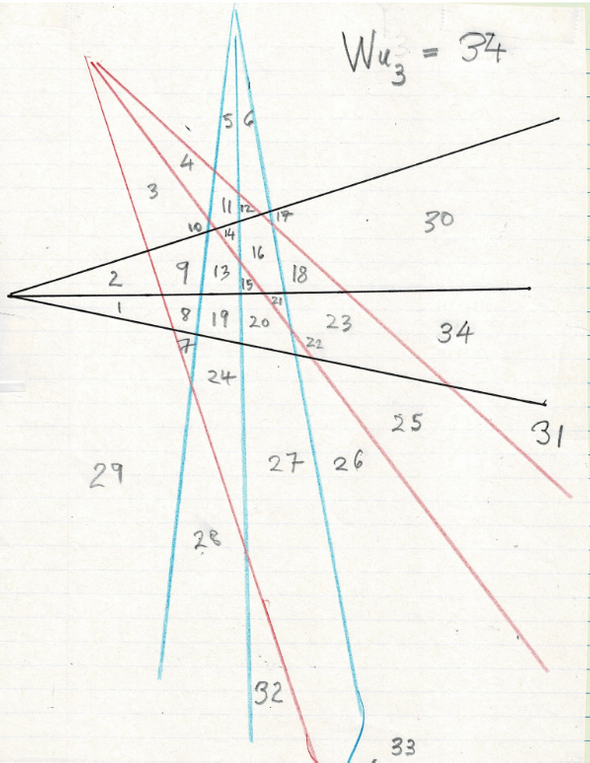 Wu₃ = 34
5 6
4
3
11 12
17
30
10
14
16
2
9
13
15
18
1
8
19
20
21
23
34
7
22
24
25
31
29
27
26
28
32
33